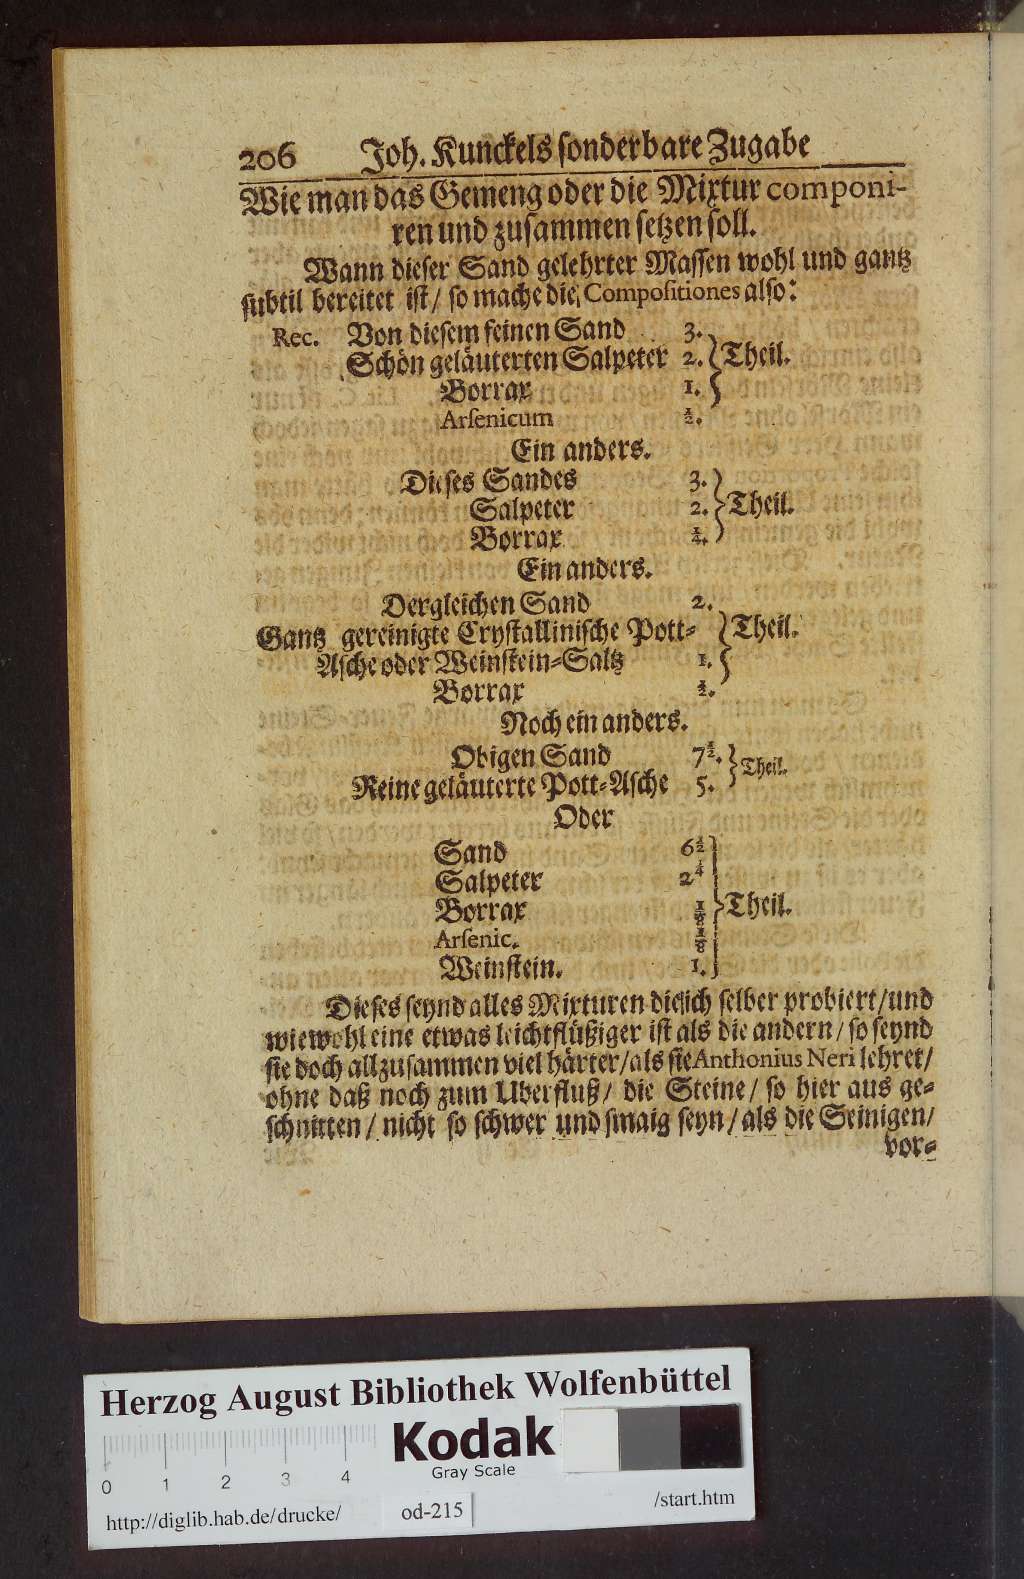 206 Joh. Kunckels sonderbare Zugabe
Wie man das Gemeng oder die Mixtur componi-
ren und zusammen setzen soll.
Wann dieser Sand gelehrter Massen wohl und gantz
subtil bereitet ist/ so mache die Compositiones also:
Rec. Von diesem feinen Sand 3.
Schön geläuterten Salpeter 2. } Theil.
Borrax 1.
Arsenicum ½.
Ein anders.
Dieses Sandes 3.
Salpeter 2. } Theil.
Borrax ¼.
Ein anders.
Dergleichen Sand 2.
Gantz gereinigte Crystallinische Pott- } Theil.
Asche oder Weinstein-Saltz 1.
Borrax ½.
Noch ein anders.
Obigen Sand 7½. } Theil.
Reine geläuterte Pott-Asche 5.
Oder
Sand 6½
Salpeter 2¼
Borrax ⅛ } Theil.
Arsenic. ⅛
Weinstein. 1.
Dieses seynd alles Mixturen die ich selber probiert/ und
wiewohl eine etwas leichtflüßiger ist als die andern/ so seynd
sie doch allzusammen viel härter/ als sie Anthonius Neri lehret/
ohne daß noch zum Uberfluß/ die Steine/ so hier aus ge-
schnitten/ nicht so schwer und smaig seyn/ als die Seinigen/
vor-
Herzog August Bibliothek Wolfenbüttel
Kodak
Gray Scale
0 1 2 3 4
http://diglib.hab.de/drucke/ od-215 /start.htm